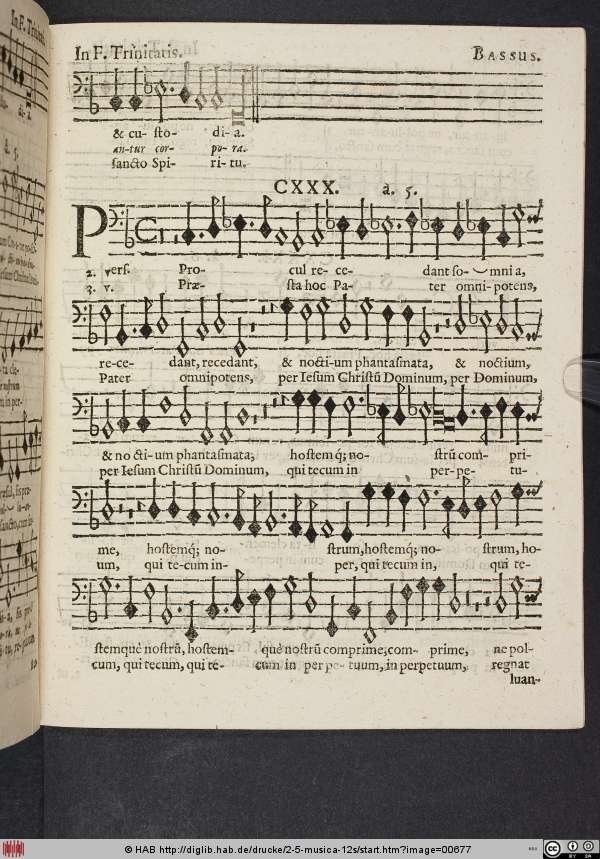 In F. Trinitatis. BASSUS.
& cu- sto- di- a.
an-tur cor- po- ra.
sancto Spi- ri- tu.
CXXX. à. 5.
P
2. vers. Pro- cul re- ce- dant so- mnia,
3. v. Præ- sta hoc Pa- ter omni-potens,
re-ce- dant, recedant, & nocti-um phantasmata, & noctium,
Pater omnipotens, per Iesum Christũ Dominum, per Dominum,
& no cti-um phantasmata; hostemq́; no- strũ com- pri-
per Iesum Christũ Dominum, qui tecum in per-pe- tu-
me, hostemq́; no- strum, hostemq́; no- strum, ho-
um, qui te-cum in- per, qui tecum in, qui te-
stemquè nostrũ, hostem- què nostrũ comprime, com- prime, ne pol-
cum, qui tecum, qui te- cum in per pe- tuum, in perpetuum, regnat
luan-
© HAB http://diglib.hab.de/drucke/2-5-musica-12s/start.htm?image=00677